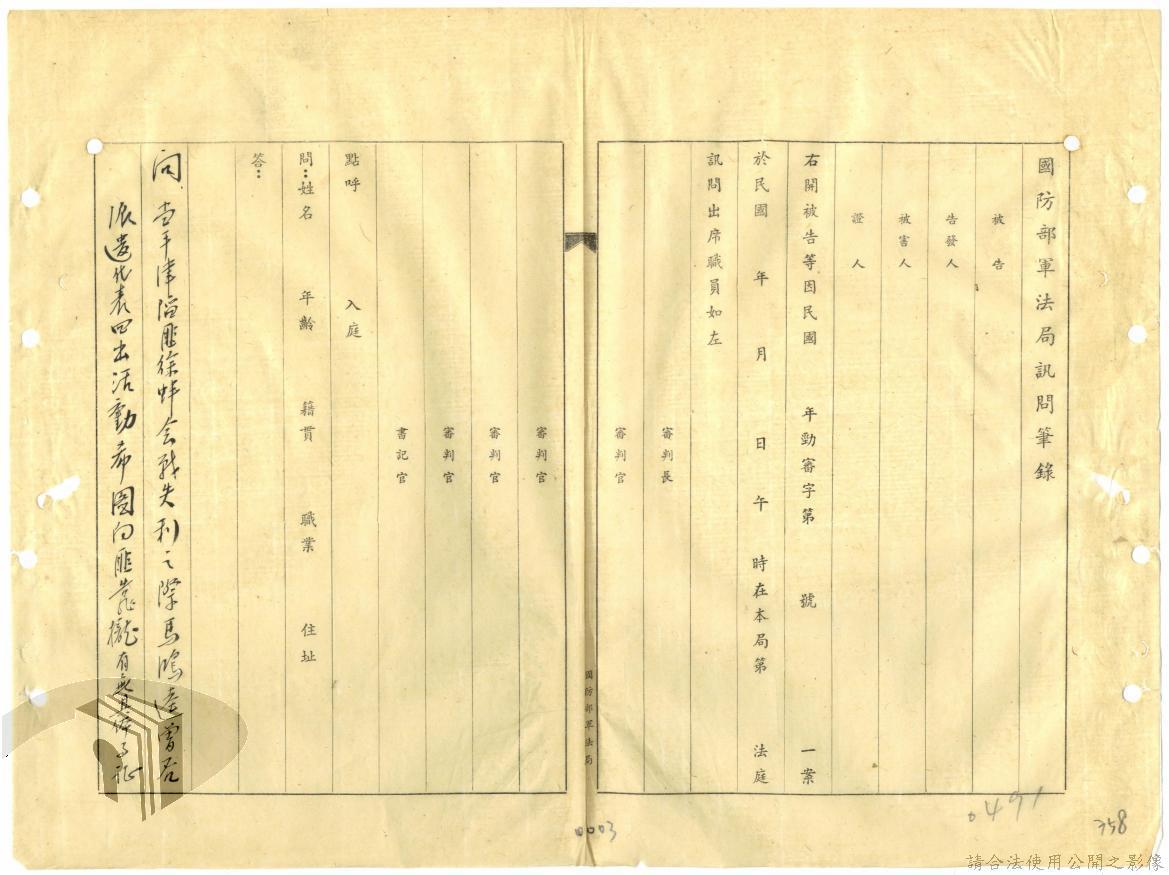 國防部軍法局訊問筆錄
被告
告發人
被害人
證人
右開被告等因民國 年勁審字第 號 一案
於民國 年 月 日 午 時在本局第 法庭
訊問出席職員如左
審判長
審判官
國防部軍法局
審判官
審判官
審判官
書記官
點呼 入庭
問：姓名 年齡 籍貫 職業 住址
答：
问 当平津淪匪徐蚌会战失利之際馬鴻逵曾否
派遣代表四出活動希图向匪靠攏有無具体事证
0003
0491
358
請合法使用公開之影像